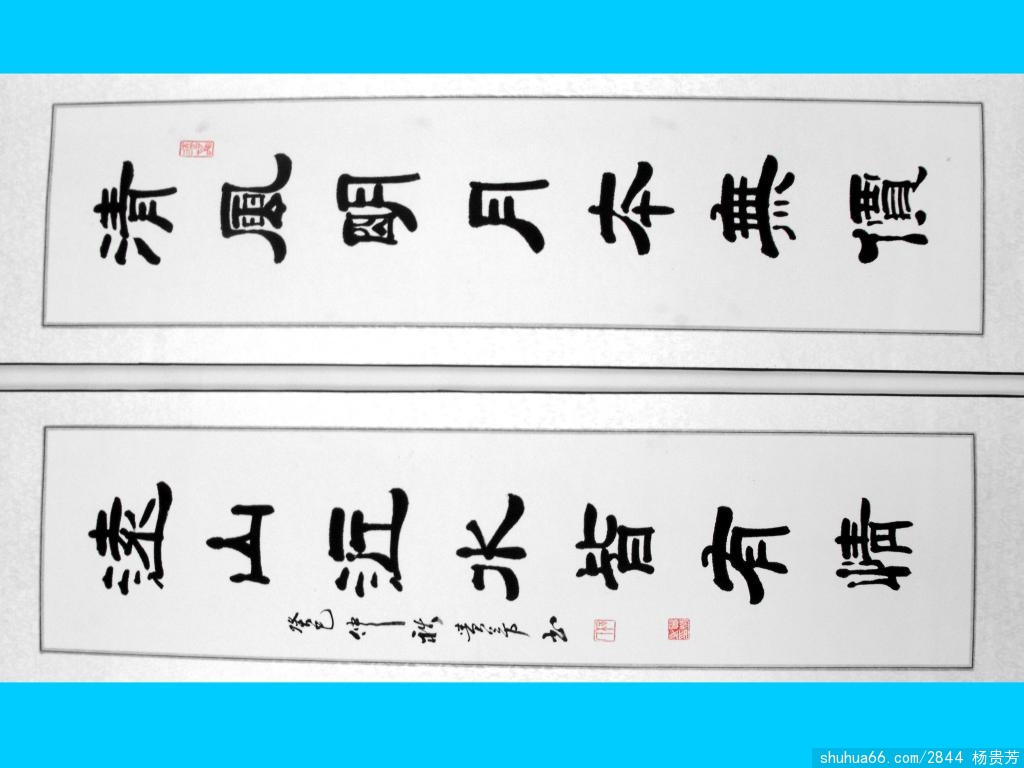 清風明月本無價
遠山近水皆有情
癸巳仲秋貴芳书
shuhua66.com/2844 杨贵芳